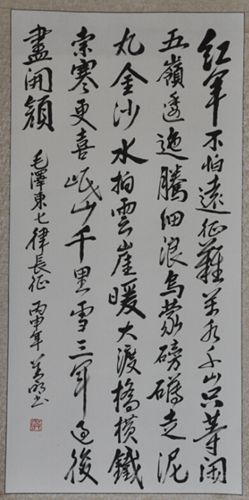 紅軍不怕遠征難萬水千山只等閑
五嶺逶迤騰細浪烏蒙磅礴走泥
丸金沙水拍雲崖暖大渡橋橫鐵
索寒更喜岷山千里雪三軍過後
盡開顏
毛澤東七律長征 丙申年 書